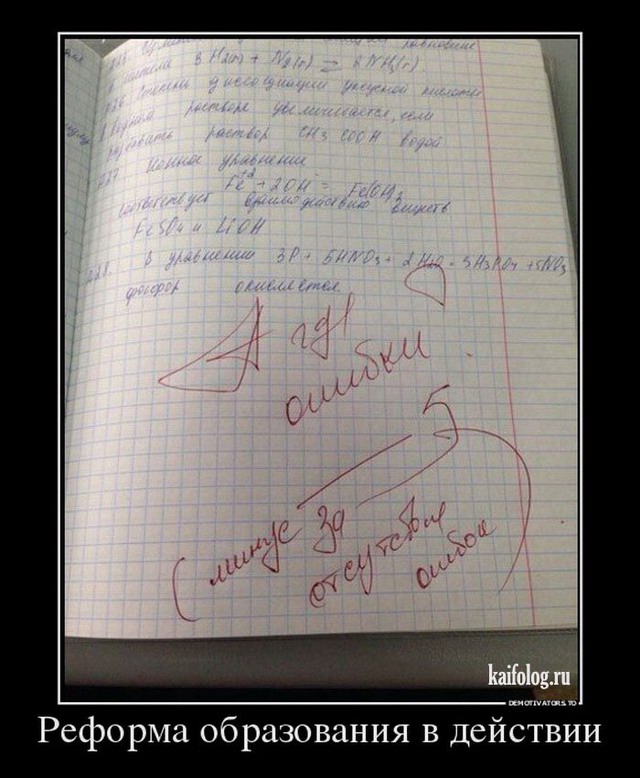 равновесие
3 H2(г) + N2(г) ⇄ 2 NH3(г)
Степень диссоциации уксусной кислоты
в водном растворе увеличивается, если
разбавить раствор CH3COOH водой
Ионное уравнение
Fe+2 + 2OH- = Fe(OH)2
соответствует взаимодействию веществ
FeSO4 и LiOH
228. В уравнении 3P + 5HNO3 + 2H2O = 3H3PO4 + 5NO
фосфор окисляется.
А где
ошибки?
5-
(минус за
отсутствие
ошибок)
kaifolog.ru
DEMOTIVATORS.TO
Реформа образования в действии